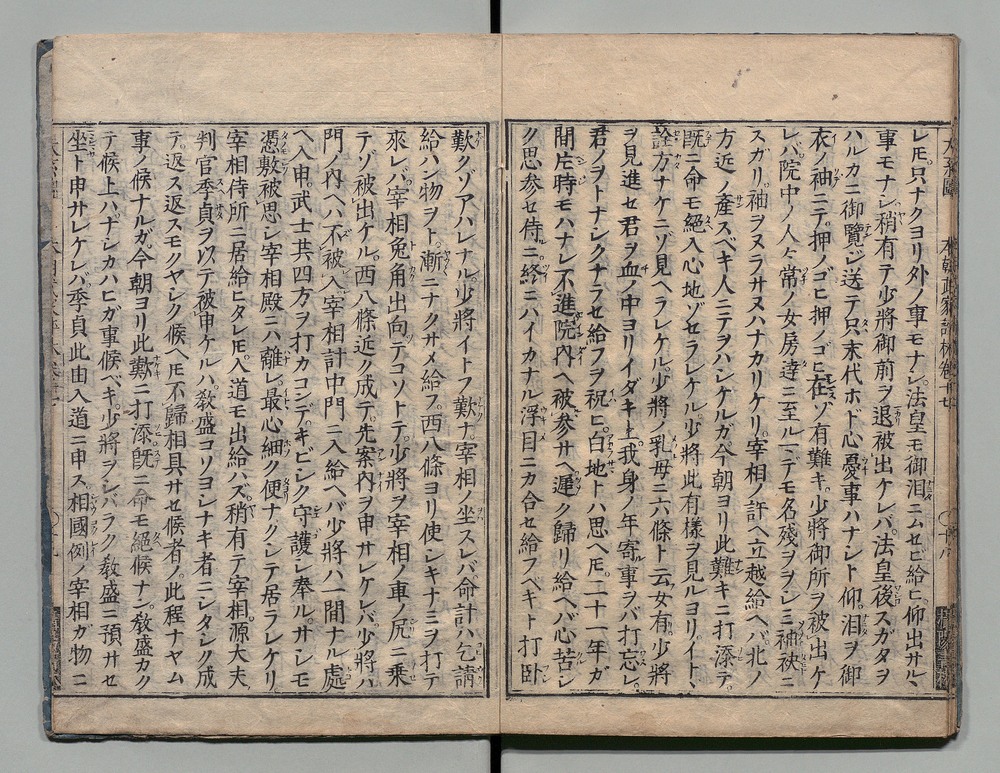 レ𪜈只ナクヨリ外ノ事モナシ法皇モ御泪ニムセビ給ヒ仰出サル丶
事モナシ稍有テ少將御前ヲ退被出ケレバ法皇後スガタヲ
ハルカニ御覽ジ送テ只末代ホド心憂事ハナシト仰泪ヲ御
衣ノ袖ニテ押ノゴヒ押ノゴヒ在ゾ有難キ少將御所ヲ被出ケ
レバ院中ノ人々常ノ女房達ニ至ルマデモ名殘ヲヲシミ袂ニ
スガリ袖ヲヌラサヌハナカリケリ宰相ノ許ヘ立越給ヘバ北ノ
方近ノ產スベキ人ニテヲハシケルガ今朝ヨリ此難キニ打添テ
既ニ命モ絕入心地ゾセラレケル少將此有樣ヲ見ルヨリイト丶
詮方ナケニゾ見ヘラレケル少將ノ乳母ニ六條ト云女有少將
ヲ見進セ君ヲ血ノ中ヨリイダキ上我身ノ年寄事ヲバ打忘レ
君ノヲトナシクナラセ給フヲ祝ヒ白地トハ思ヘ𪜈二十一年ガ
間片時モハナレ不進院内ヘ被參サヘ遲ク歸リ給ヘバ心苦シ
ク思參セ侍ニ終ニハイカナル浮目ニカ合セ給フベキト打臥
歎クゾアハレナル少將イトフ歎ナ宰相ノ坐スレバ命計ハ乞請
給ハン物ヲト漸ニナクサメ給フ西八條ヨリ使シキナミヲ打テ
來レバ宰相兎角出向テコソトテ少將ヲ宰相ノ車ノ尻ニ乘
テゾ被出ケル西八條近ク成テ先案内ヲ申サレケレバ少將ハ
門ノ内ヘハ不被入宰相計中門ニ入給ヘバ少將ハ一間ナル處
ヘ入申武士共四方ヲ打カコンデキビシク守護シ奉ルサシモ
憑敷被思シ宰相殿ニハ離レ最心細ク便ナクシテ居ラレケリ
宰相侍所ニ居給ヒタレ𪜈入道モ出給ハズ稍有テ宰相源大夫
判官季貞ヲ以テ被申ケルハ敎盛コソヨシナキ者ニシタシク成
テ返ス返スモクヤシク候ヘ𪜈不歸相具サセ候者ノ此程ナヤム
事ノ候ナルガ今朝ヨリ此歎ニ打添既ニ命モ絕候ナン敎盛カク
テ候上ハナジカハヒガ事候ベキ少將ヲシバラク敎盛ニ預サセ
坐ト申サレケレバ季貞此由入道ニ申ス相國例ノ宰相ガ物ニ